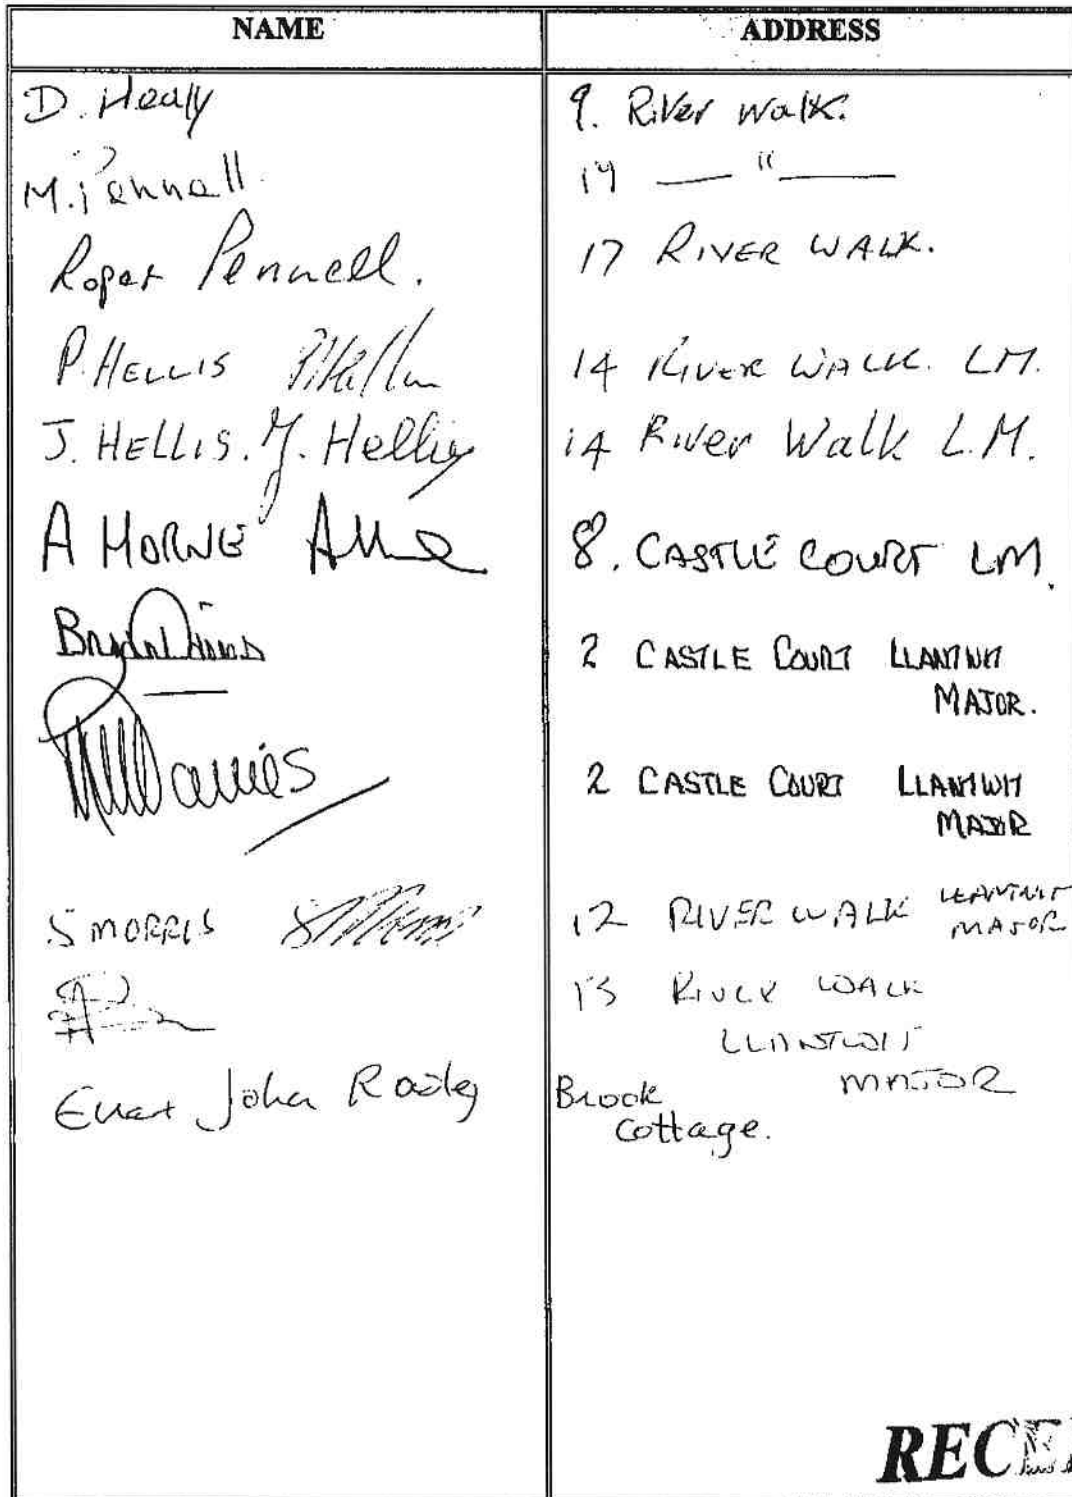 NAME ADDRESS
D. Healy 9. River Walk.
M. Pennell 17 — " —
Roger Pennell. 17 RIVER WALK.
P. HELLIS 14 RIVER WALK. LM.
J. HELLIS. J. Hellis 14 River Walk L.M.
A HORNE 8. CASTLE COURT LM.
Bryan Davies 2 CASTLE COURT LLANTWIT
MAJOR.
Davies 2 CASTLE COURT LLANTWIT
MAJOR
S MORRIS 12 RIVER WALK LLANTWIT
MAJOR
RIVER WALK
LLANTWIT
MAJOR
John Brook
Cottage.
REC